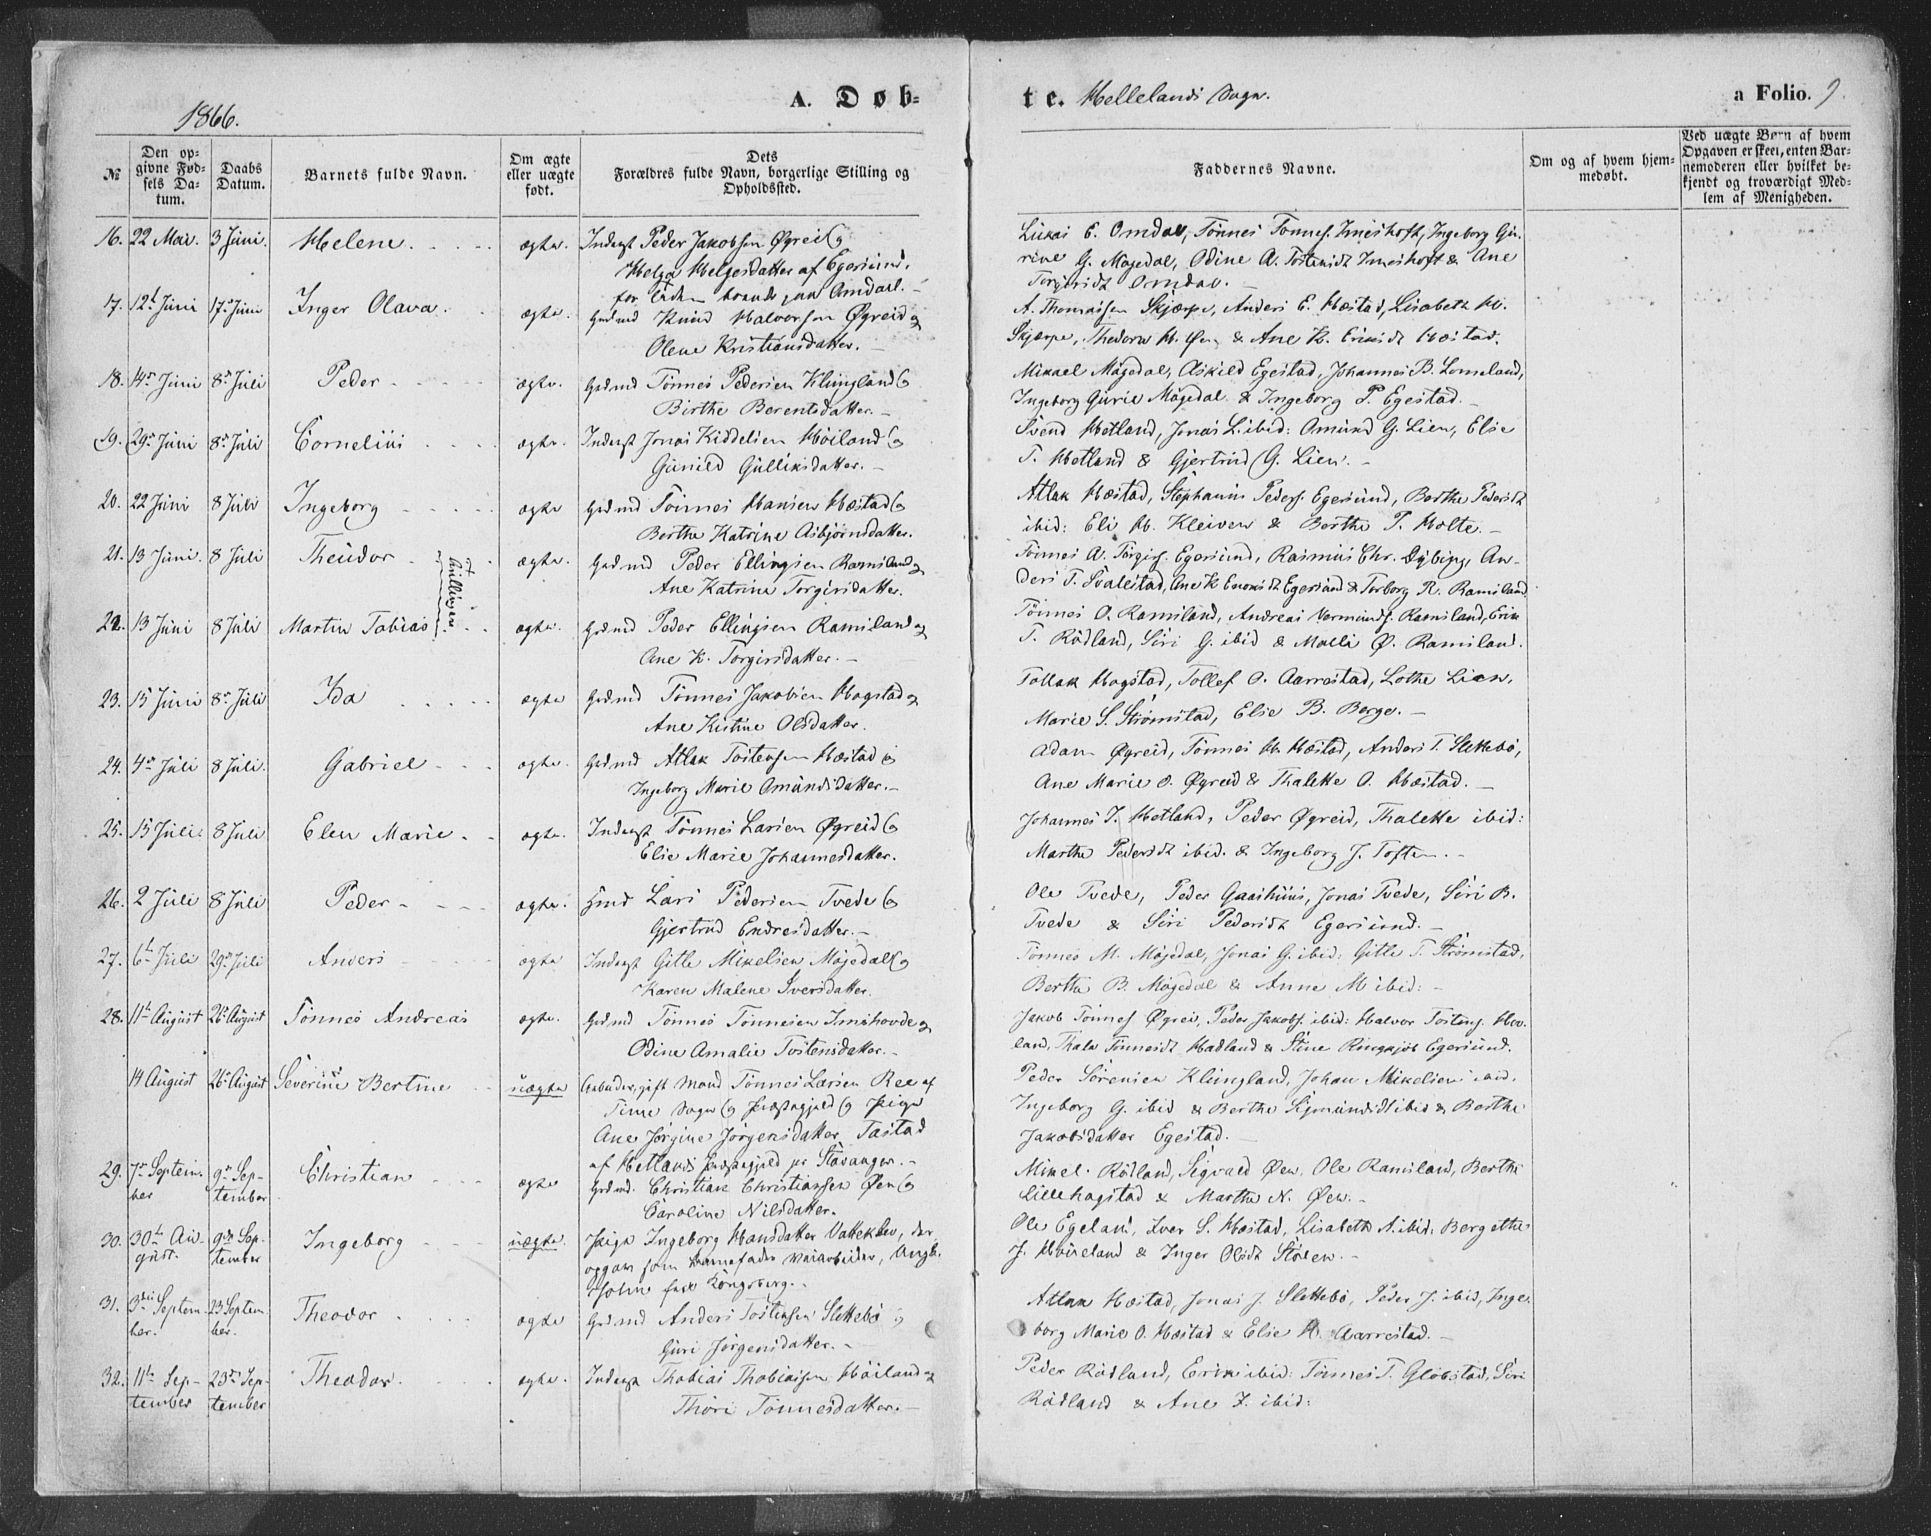 1866.
A. Døb-
te. Hellelands Sogn.
a Folio. 9.
№
Den op-
givne Fød-
sels Da-
tum.
Daabs
Datum.
Barnets fulde Navn.
Om ægte
eller uægte
født.
Dets
Forældres fulde Navn, borgerlige Stilling og
Opholdssted.
Faddernes Navne.
Om og af hvem hjem-
medøbt.
Ved uægte Børn af hvem
Opgaven er skeet, enten Bar-
nemoderen eller hvilket be-
kjendt og troværdigt Med-
lem af Menigheden.
16. 22 Mai. 3 Juni. Helene. ægte. Inderst Peder Jakobsen Øgreid og
Helga Helgesdatter af Egersund,
for Tiden boende paa Omdal.
Lukas E. Omdal, Tønnes Tønnes. Imeshoft, Ingeborg Gu-
rine G. Mögedal, Odine A. Tostensdt Imeshoft & Ane
Torgersdt Omdal.
17. 12t Juni 17de Juni Inger Olava. ægte. Grdmd Knud Halvorsen Øgreid og
Olene Kristiansdatter.
A. Thomassen Skjærpe, Anders E. Hæstad, Lisabeth H.
Skjærpe, Thedora H. Øen & Ane K. Eriksdt Hæstad.
18. 14de Juni 8de Juli Peder ægte. Grdmd Tönnes Pedersen Klungland og
Birthe Berentsdatter.
Mikael Mögedal, Askild Egestad, Johannes B. Lomeland,
Ingeborg Gurie Mögedal & Ingeborg P. Egestad.
19. 29de Juni 8de Juli Cornelius ægte. Inderst Jonas Kiddelsen Höiland og
Gunild Gulliksdatter.
Svend Hetland, Jonas L. ibid: Amund G. Lien, Elie
T. Hetland & Gjertrud G. Lien.
20. 22 Juni 8 Juli Ingeborg ægte Grdmd Tönnes Hansen Hæstad og
Berthe Katrine Asbjørnsdatter.
Atlak Hæstad, Stephanus Peders. Egersund, Berthe Pedersdt
ibid: Eli H. Kleiven & Berthe T. Holte.
21. 13 Juni. 8 Juli Theodor ægte. Grdmd Peder Ellingsen Ramsland og
Ane Katrine Torgersdatter.
Tönnes A. Torgis. Egersund, Rasmus Chr. Dybing, An-
ders T. Svalestad, Ane K Enoksdt Egersund & Torborg R. Ramsland
Tvillinger
22. 13 Juni 8 Juli Martin Tobias ægte. Grdmd Peder Ellingsen Ramsland og
Ane K. Torgersdatter.
Tönnes O. Ramsland, Andreas Vermunds. Ramsland, Erik
T. Rödland, Siri G. ibid & Malli Ø. Ramsland.
23. 15 Juni 8de Juli Ida ægte Grdmd Tönnes Jakobsen Hogstad og
Ane Kistine Olsdatter.
Tollak Hogstad, Tollef O. Aarrestad, Lothe Lien,
Marie S. Strömstad, Elie B. Berge.
24. 4de Juli 8 Juli. Gabriel ægte. Grdmd Atlak Tostensen Hæstad og
Ingeborg Marie Amundsdatter.
Adam Øgreid, Tönnes H. Hæstad, Anders T. Slettebö,
Ane Marie O. Øgreid & Thalette O. Hæstad.
25. 15 Juli. 8 Juli Elen Marie. ægte. Inderst Tönnes Larsen Øgreid og
Elie Marie Johannesdatter.
Johannes J. Hetland, Peder Øgreid, Thalette ibid:
Marthe Pedersdt ibid. & Ingeborg J. Toften.
26. 2 Juli 8 Juli Peder ægte. Hmd Lars Pedersen Tvede og
Gjertrud Endresdatter.
Ole Tvede, Peder Gaashuus, Jonas Tvede, Siri B.
Tvede & Siri Pedersdt Egersund.
27. 6t Juli 29de Juli Anders ægte Inderst Gitle Mikelsen Mögedal og
Karen Malene Iversdatter.
Tönnes M. Mögedal, Jonas G. ibid: Gitle T. Strömstad,
Berthe B. Mögedal & Anne M ibid:
28. 11te August 26de August Tönnes Andreas ægte. Grdmd Tönnes Tönnesen Imshovde og
Odine Amalie Tostensdatter.
Jakob Tönnes. Øgreid, Peder Jakobs. ibid: Halvor Tostens. Hov-
land, Thala Tönnesdt Hadland & Stine Ringskjöb Egersund.
14 August 26de August Severine Bertine uægte Gaardbr. gift Mand Tönnes Larsen Ree af
Time Sogn og Præstegjeld og Pigen
Ane Jörgine Jörgensdatter Tastad
af Hetlands Præstegjeld pr Stavanger.
Peder Sörensen Klungland, Johan Mikelsen ibid.
Ingeborg G. ibid & Berthe Sigmundsdt ibid & Berthe
Jakobsdatter Egestad.
29. 7de Septem-
ber 9de Sep-
tember Christian ægte Grdmd. Christian Christiansen Øen og
Caroline Nilsdatter.
Mikel Rödland, Sigvald Øen, Ole Ramsland, Berthe
Lillehagstad & Marthe N. Øen.
30. 30te Au-
gust. 9de Sep-
tember Ingeborg uægte. Pige Ingeborg Hansdatter Vatteklev, der
opgav som Barnefader Veiarbeider, Ungk.
John fra Kongsberg.
Ole Egeland, Iver S. Hæstad, Lisabeth A. ibid: Bergethe
J. Hövreland & Inger Olsdt Stölen.
31. 3die Septem-
ber. 23 Septem-
ber. Theodor ægte Grdmd Anders Tostensen Slettebö og
Guri Jörgensdatter.
Atlak Hæstad, Jonas J. Slettebö, Peder J. ibid, Inge-
borg Marie O. Hæstad & Elie H. Aarrestad.
32. 11te Sep-
tember 23de Sep-
tember Theodor. ægte. Inderst Thobias Thobiassen Höiland og
Thori Tönnesdatter.
Peder Rödland, Erik ibid: Tönnes T. Glöbstad, Siri
Rödland & Ane T. ibid: